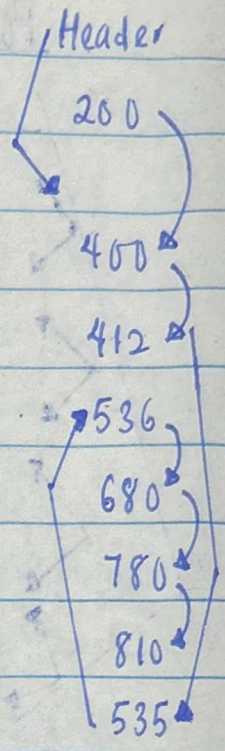 Header
200
400
412
536
680
780
810
535